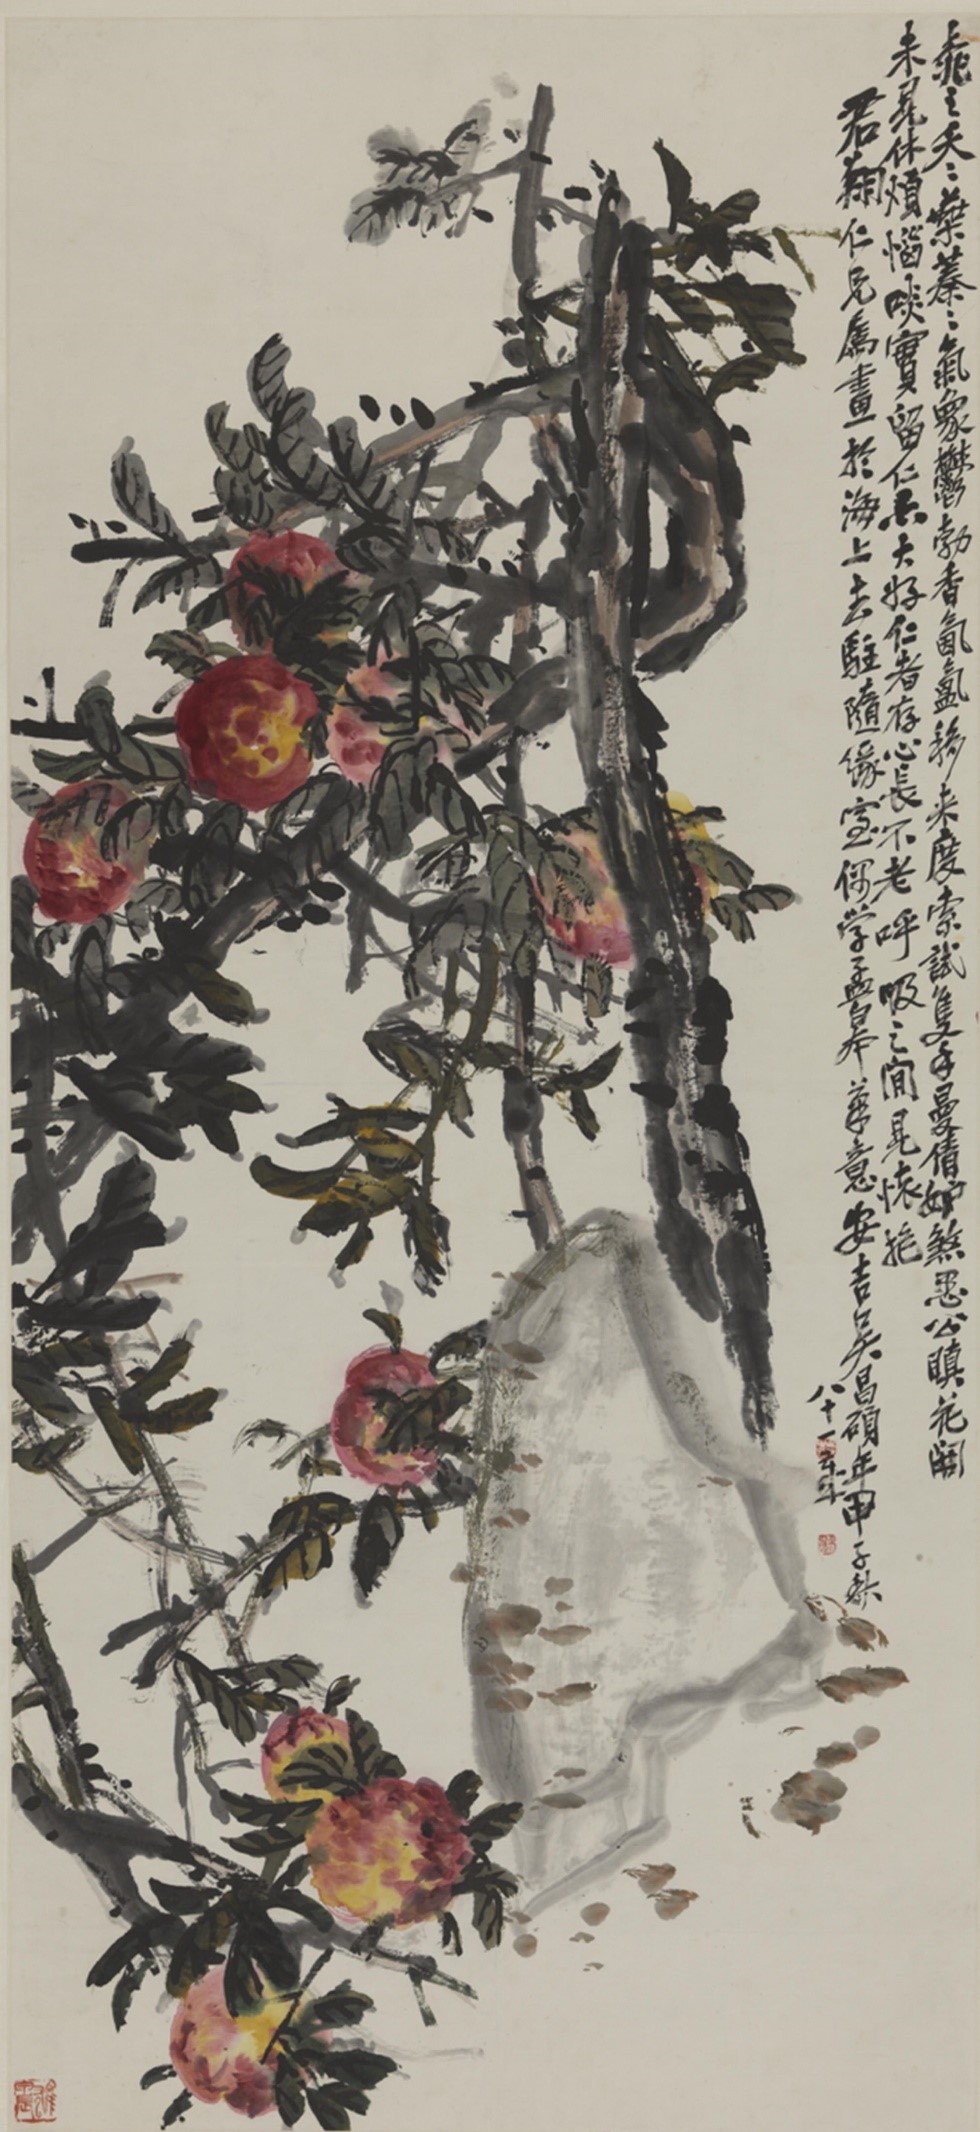 桃之夭夭葉蓁蓁氣象鬱勃香氤氳移來度索試隻手曼倩妒煞愚公瞋花開
未見休煩惱啖實留仁亦大好仁者存心長不老呼吸之間見懷抱
君翔仁兄屬畫於海上去駐隨緣室倣學孟皋筆意安吉吳昌碩年甲子秋
八十一